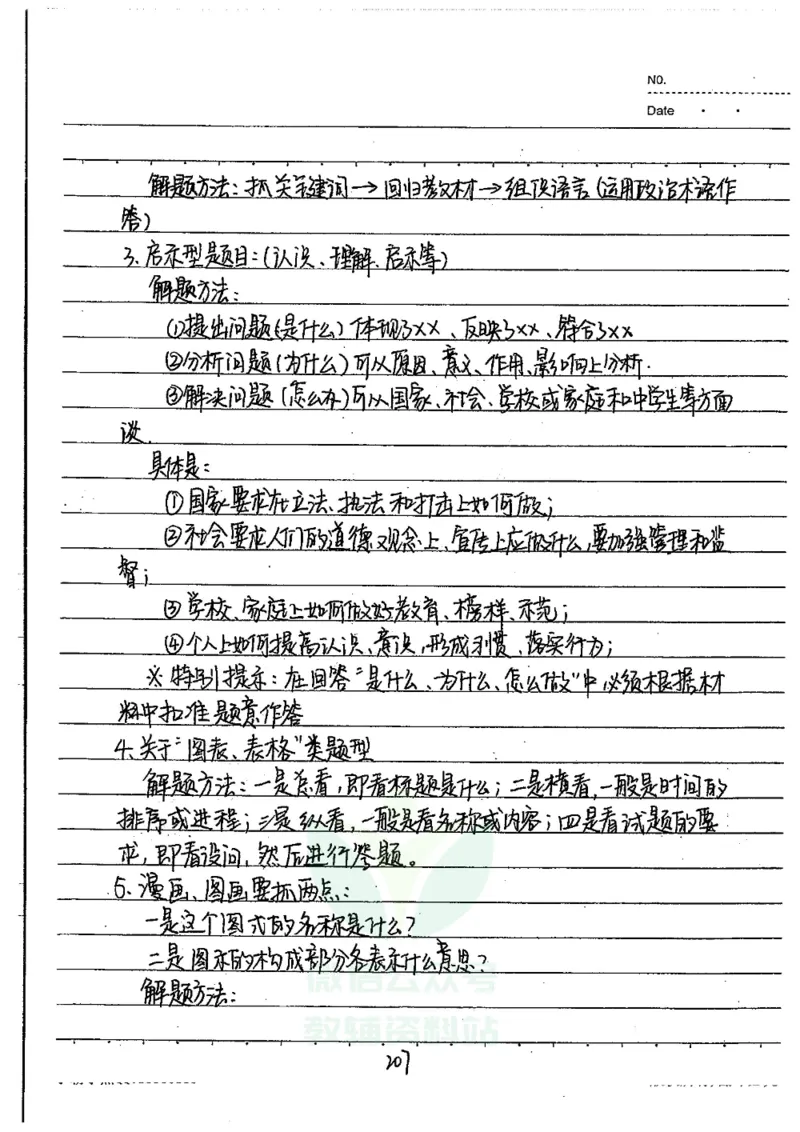 NO.
Date
解题方法：抓关键词→回归教材→组织语言（运用政治术语作
答）
3、启示型题目：（认识、理解、启示等）
解题方法：
①提出问题（是什么）体现了××、反映了××、符合了××
②分析问题（为什么）可从原因、意义、作用、影响上分析.
③解决问题（怎么办）可从国家、社会、学校或家庭和中学生等方面
谈.
具体是：
①国家要求在立法、执法和打击上如何做；
②社会要求人们的道德观念上、宣传上应做什么，要加强管理和监
督；
③学校、家庭上如何做好教育、榜样、示范；
④个人上如何提高认识、意识，形成习惯、落实行为；
※特别提示：在回答“是什么、为什么、怎么做”中必须根据材
料中扣准题意作答
4、关于“图表、表格”类题型
解题方法：一是总看，即看标题是什么；二是横看，一般是时间的
排序或进程；三是纵看，一般是看名称或内容；四是看试题的要
求，即看设问，然后进行答题。
5、漫画、图画要抓两点：
一是这个图式的名称是什么？
二是图示的构成部分各表示什么意思？
解题方法：
微信公众号
教辅资料站
207